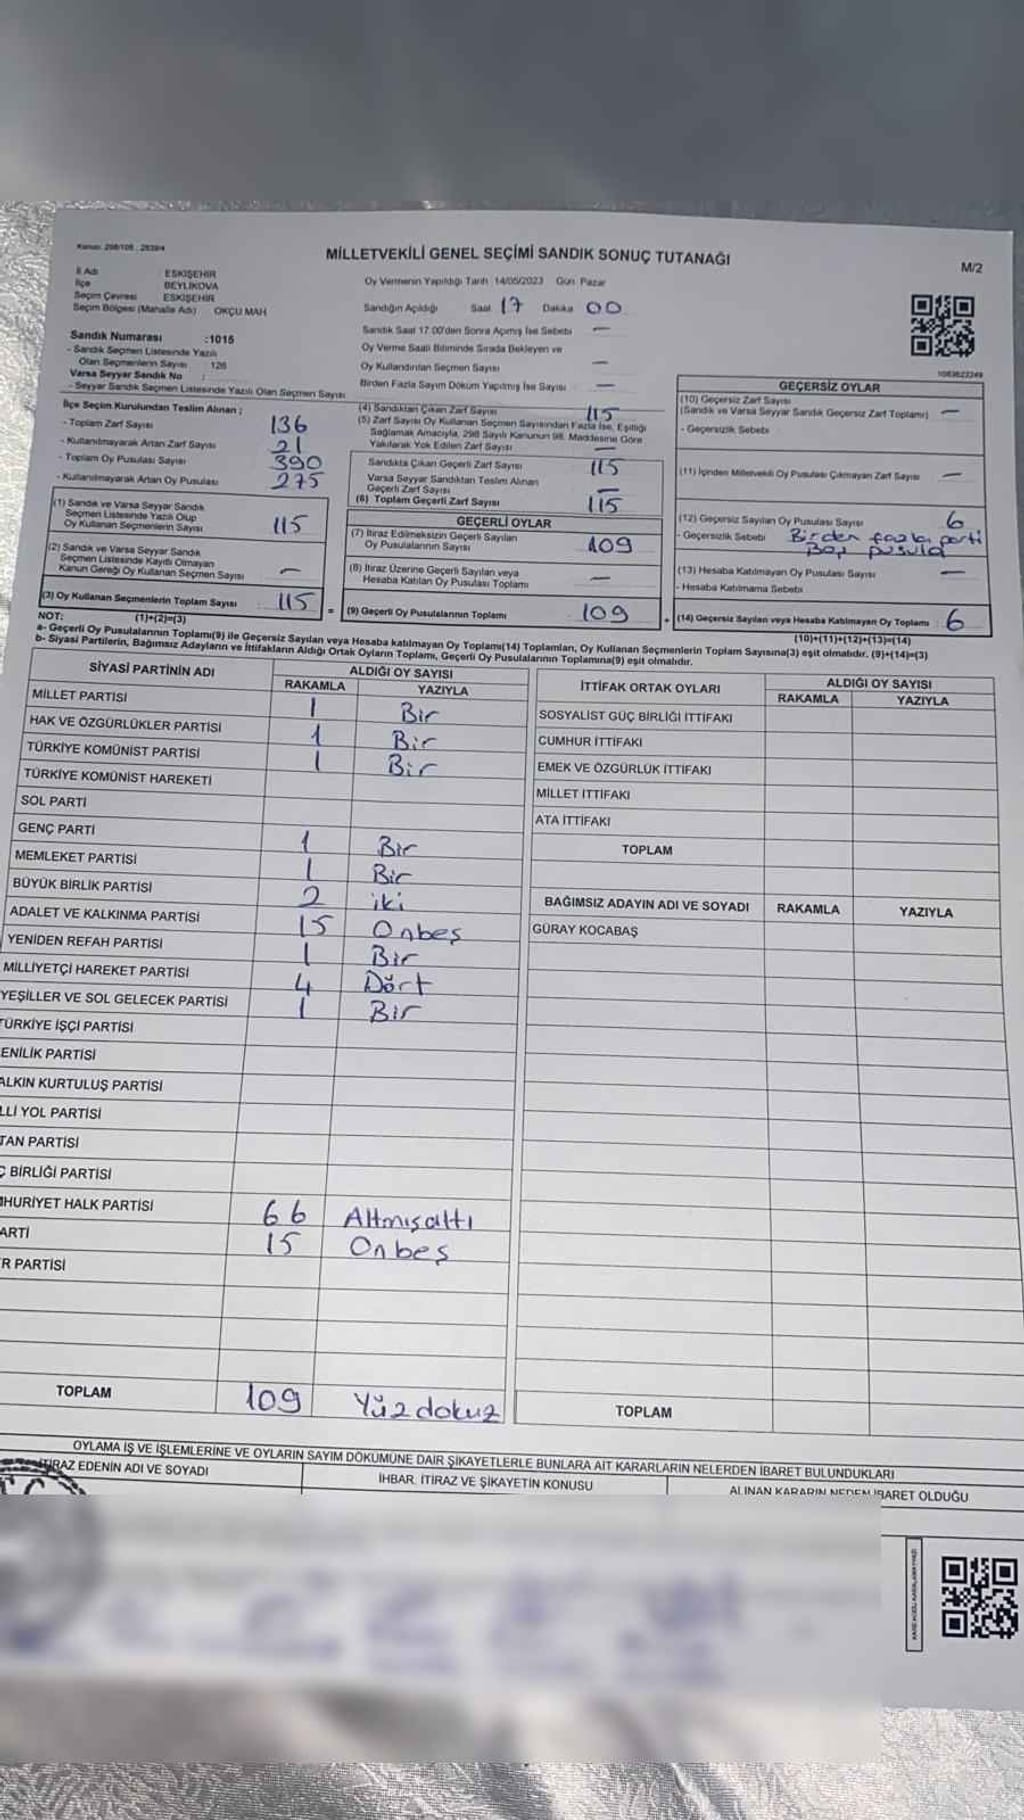 Kanun: 298/105 , 2839/4
MİLLETVEKİLİ GENEL SEÇİMİ SANDIK SONUÇ TUTANAĞI
M/2
İl Adı ESKİŞEHİR
İlçe BEYLİKOVA
Seçim Çevresi ESKİŞEHİR
Seçim Bölgesi (Mahalle Adı) OKÇU MAH
Oy Vermenin Yapıldığı Tarih 14/05/2023 Gün Pazar
Sandığın Açıldığı Saat 17 Dakika 00
Sandık Saat 17.00'den Sonra Açımış İse Sebebi —
Oy Verme Saati Bitiminde Sırada Bekleyen ve
Oy Kullandırılan Seçmen Sayısı —
Birden Fazla Sayım Döküm Yapılmış İse Sayısı —
Sandık Numarası :1015
- Sandık Seçmen Listesinde Yazılı
Olan Seçmenlerin Sayısı 126
Varsa Seyyar Sandık No :
- Seyyar Sandık Seçmen Listesinde Yazılı Olan Seçmen Sayısı
İlçe Seçim Kurulundan Teslim Alınan ;
- Toplam Zarf Sayısı 136
- Kullanılmayarak Artan Zarf Sayısı 21
- Toplam Oy Pusulası Sayısı 390
- Kullanılmayarak Artan Oy Pusulası 275
(1) Sandık ve Varsa Seyyar Sandık
Seçmen Listesinde Yazılı Olup
Oy Kullanan Seçmenlerin Sayısı 115
(2) Sandık ve Varsa Seyyar Sandık
Seçmen Listesinde Kayıtlı Olmayan
Kanun Gereği Oy Kullanan Seçmen Sayısı —
(3) Oy Kullanan Seçmenlerin Toplam Sayısı 115
(1)+(2)=(3)
(4) Sandıktan Çıkan Zarf Sayısı 115
(5) Zarf Sayısı Oy Kullanan Seçmen Sayısından Fazla İse, Eşitliği
Sağlamak Amacıyla, 298 Sayılı Kanunun 98. Maddesine Göre
Yakılarak Yok Edilen Zarf Sayısı —
Sandıkta Çıkan Geçerli Zarf Sayısı 115
Varsa Seyyar Sandıktan Teslim Alınan
Geçerli Zarf Sayısı —
(6) Toplam Geçerli Zarf Sayısı 115
GEÇERLİ OYLAR
(7) İtiraz Edilmeksizin Geçerli Sayılan
Oy Pusulalarının Sayısı 109
(8) İtiraz Üzerine Geçerli Sayılan veya
Hesaba Katılan Oy Pusulası Toplamı —
= (9) Geçerli Oy Pusulalarının Toplamı 109
1083622349
GEÇERSİZ OYLAR
(10) Geçersiz Zarf Sayısı
(Sandık ve Varsa Seyyar Sandık Geçersiz Zarf Toplamı) —
- Geçersizlik Sebebi
(11) İçinden Milletvekili Oy Pusulası Çıkmayan Zarf Sayısı —
(12) Geçersiz Sayılan Oy Pusulası Sayısı 6
- Geçersizlik Sebebi Birden fazla parti
Boş pusula
(13) Hesaba Katılmayan Oy Pusulası Sayısı —
- Hesaba Katılmama Sebebi
+ (14) Geçersiz Sayılan veya Hesaba Katılmayan Oy Toplamı 6
(10)+(11)+(12)+(13)=(14)
NOT:
a- Geçerli Oy Pusulalarının Toplamı(9) ile Geçersiz Sayılan veya Hesaba katılmayan Oy Toplamı(14) Toplamları, Oy Kullanan Seçmenlerin Toplam Sayısına(3) eşit olmalıdır. (9)+(14)=(3)
b- Siyasi Partilerin, Bağımsız Adayların ve İttifakların Aldığı Ortak Oyların Toplamı, Geçerli Oy Pusulalarının Toplamına(9) eşit olmalıdır.
SİYASİ PARTİNİN ADI ALDIĞI OY SAYISI
RAKAMLA YAZIYLA
MİLLET PARTİSİ 1 Bir
HAK VE ÖZGÜRLÜKLER PARTİSİ 1 Bir
TÜRKİYE KOMÜNİST PARTİSİ 1 Bir
TÜRKİYE KOMÜNİST HAREKETİ
SOL PARTİ
GENÇ PARTİ 1 Bir
MEMLEKET PARTİSİ 1 Bir
BÜYÜK BİRLİK PARTİSİ 2 iki
ADALET VE KALKINMA PARTİSİ 15 Onbeş
YENİDEN REFAH PARTİSİ 1 Bir
MİLLİYETÇİ HAREKET PARTİSİ 4 Dört
YEŞİLLER VE SOL GELECEK PARTİSİ 1 Bir
TÜRKİYE İŞÇİ PARTİSİ
ENİLİK PARTİSİ
ALKIN KURTULUŞ PARTİSİ
LLİ YOL PARTİSİ
TAN PARTİSİ
Ç BİRLİĞİ PARTİSİ
MHURİYET HALK PARTİSİ 66 Altmışaltı
ARTİ 15 Onbeş
R PARTİSİ
TOPLAM 109 Yüzdokuz
İTTİFAK ORTAK OYLARI ALDIĞI OY SAYISI
RAKAMLA YAZIYLA
SOSYALİST GÜÇ BİRLİĞİ İTTİFAKI
CUMHUR İTTİFAKI
EMEK VE ÖZGÜRLÜK İTTİFAKI
MİLLET İTTİFAKI
ATA İTTİFAKI
TOPLAM
BAĞIMSIZ ADAYIN ADI VE SOYADI RAKAMLA YAZIYLA
GÜRAY KOCABAŞ
TOPLAM
OYLAMA İŞ VE İŞLEMLERİNE VE OYLARIN SAYIM DÖKÜMÜNE DAİR ŞİKAYETLERLE BUNLARA AİT KARARLARIN NELERDEN İBARET BULUNDUKLARI
İTİRAZ EDENİN ADI VE SOYADI
İHBAR, İTİRAZ VE ŞİKAYETİN KONUSU
ALINAN KARARIN NEDEN İBARET OLDUĞU